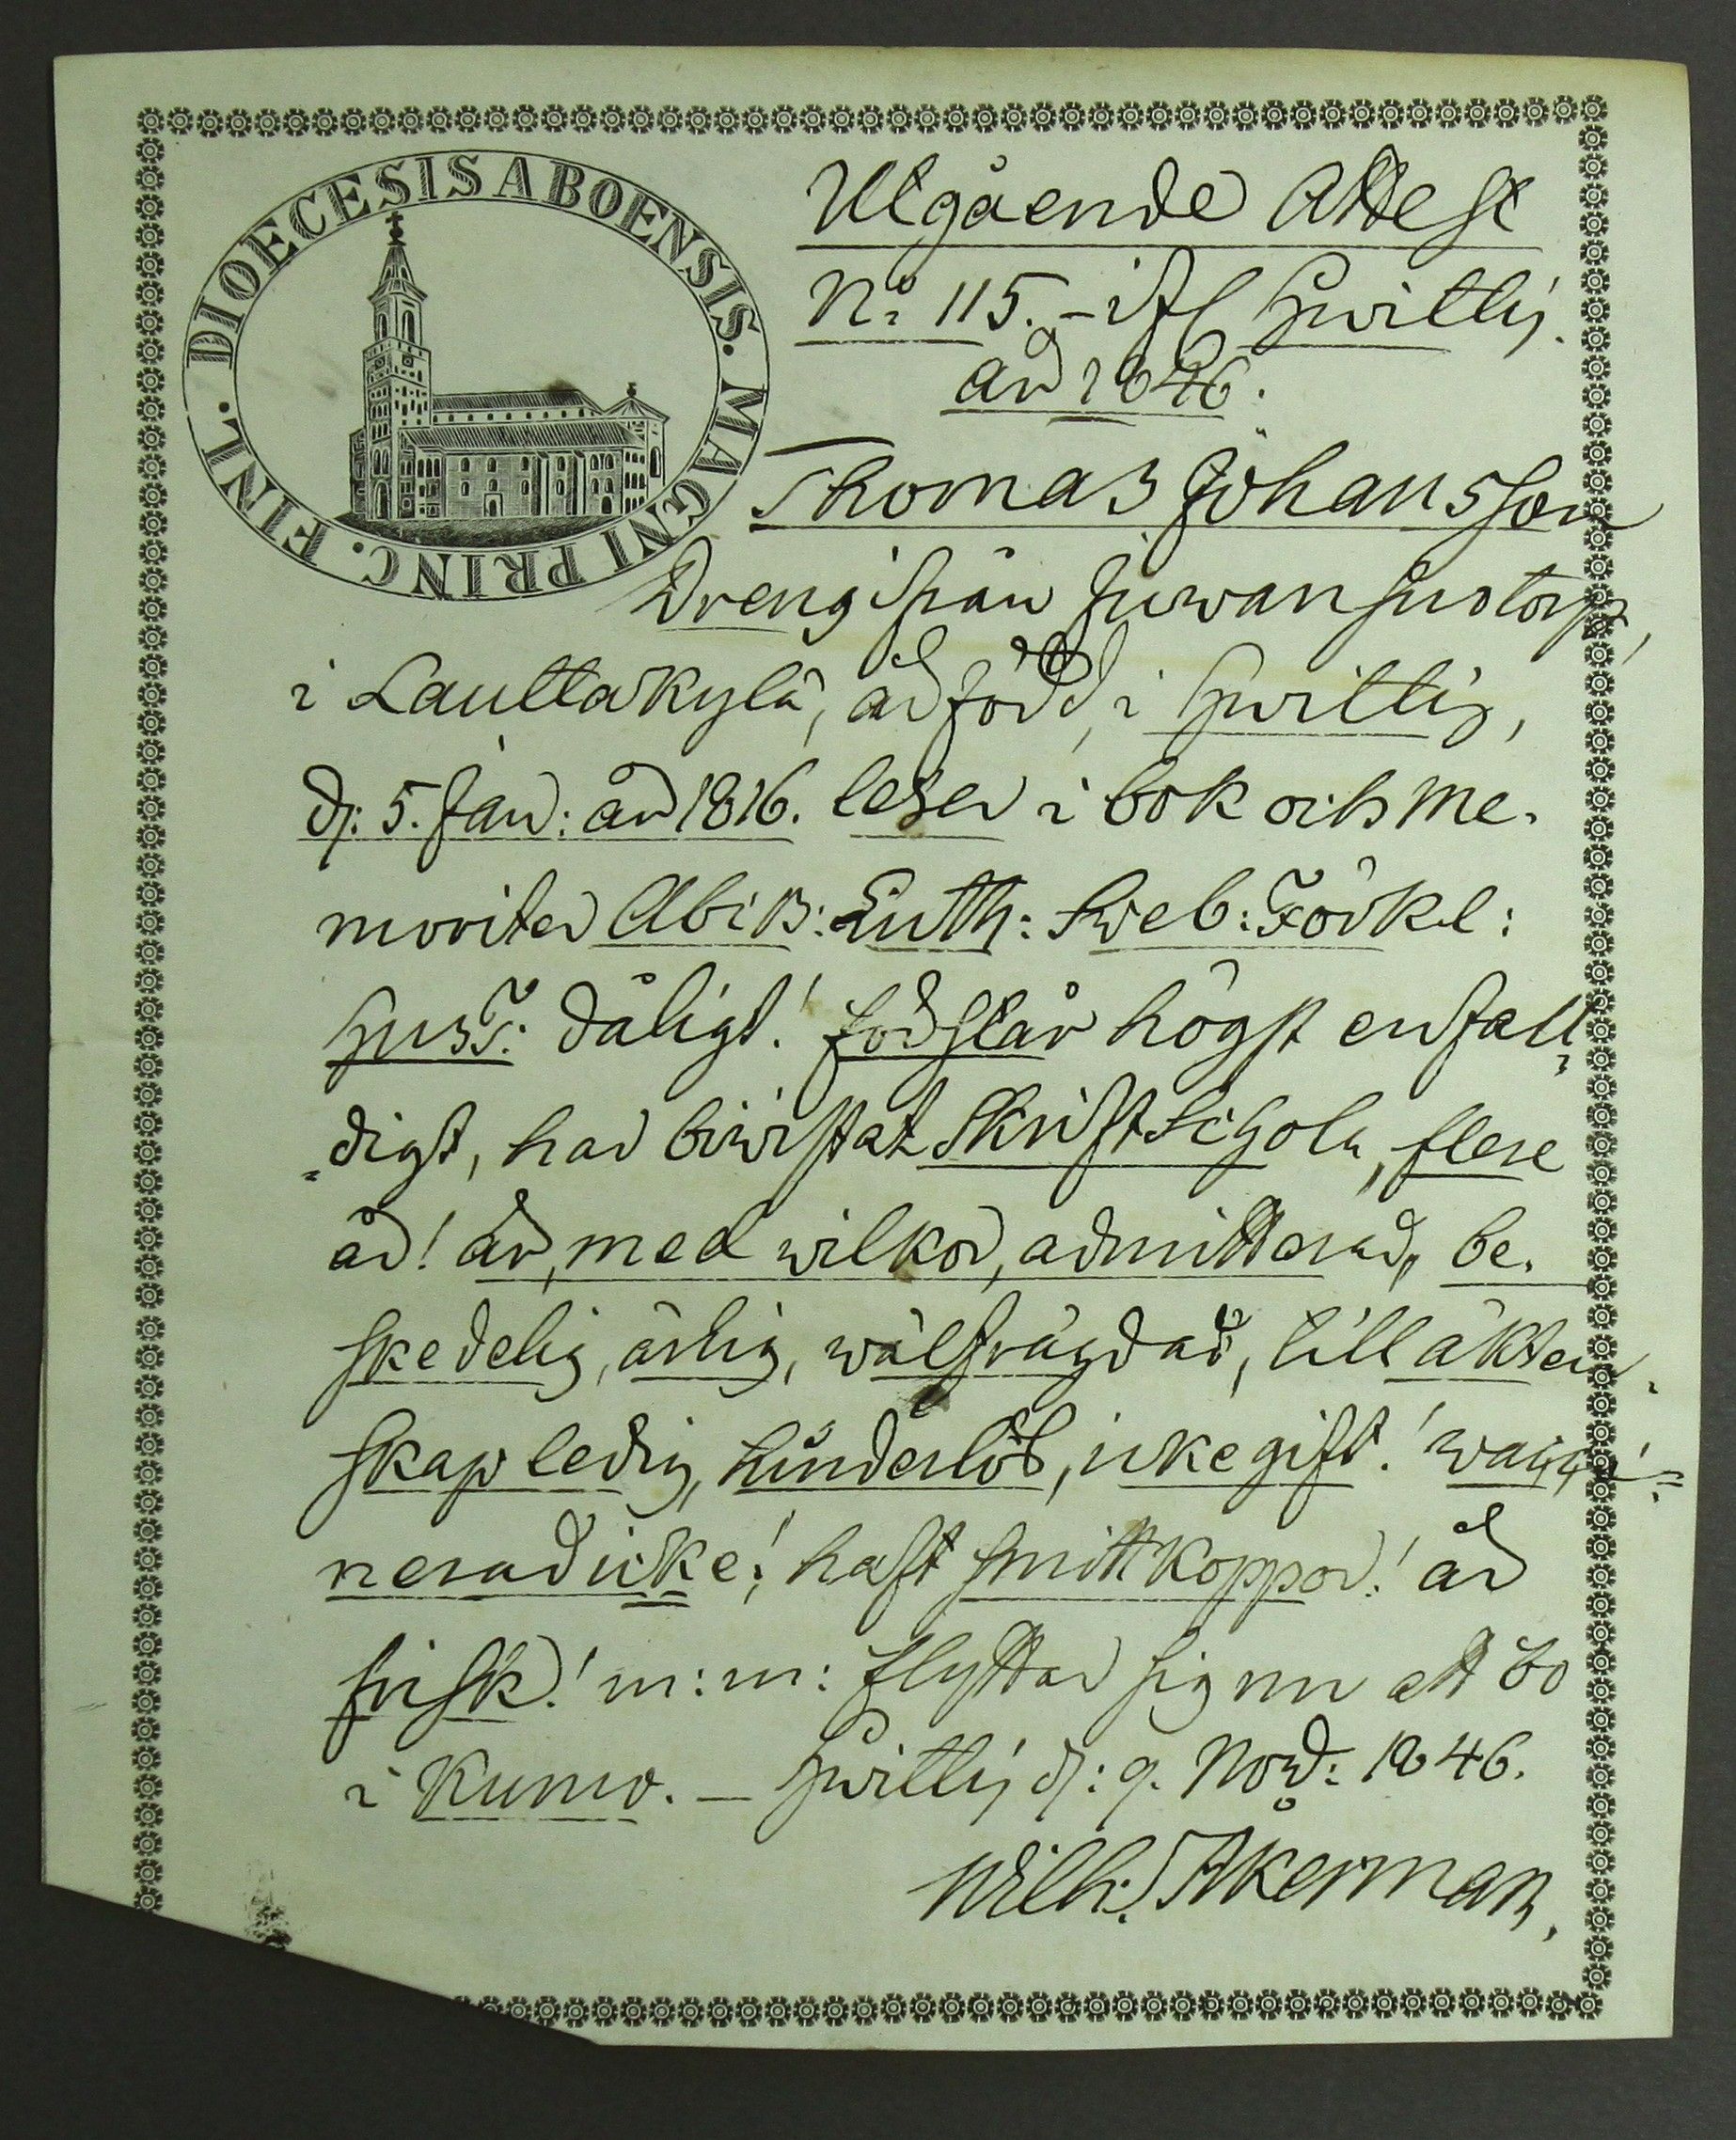 DIOECESIS ABOENSIS. MAGNI PRINC. FINL.
Utgående Attest
No: 115. – ifl Hwittis.
år 1846.
Thomas Johansson
Dreng ifrån torp,
i Lauttakylä, är född, i Hwittis,
d: 5. Jan: år 1816. läser i bok och me-
moriter Abis: Luth: Sweb: Förkl:
HusT: dåligt! förstår högst enfall-
digt, har biwistat Skriftschola, flere
år! är, med wilkor, admitterad, be-
skedelig, ärlig, wälfrägdad, till äkten-
skap ledig, hinderlös, icke gift! wacci-
nerad icke! haft smittkoppor! är
frisk! m: m: flyttar sig nu att bo
i Kumo. – Hwittis d: 9. Nov: 1846.
Wilh: Åkerman.